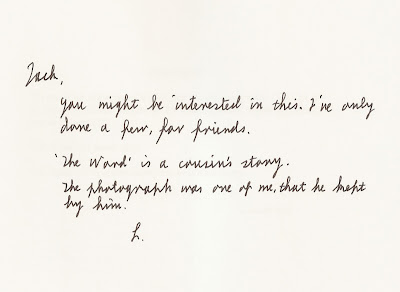 Jack,
you might be interested in this. I've only
done a few, for friends.
'The Ward' is a cousin's story.
The photograph was one of me, that he kept
by him.
L.